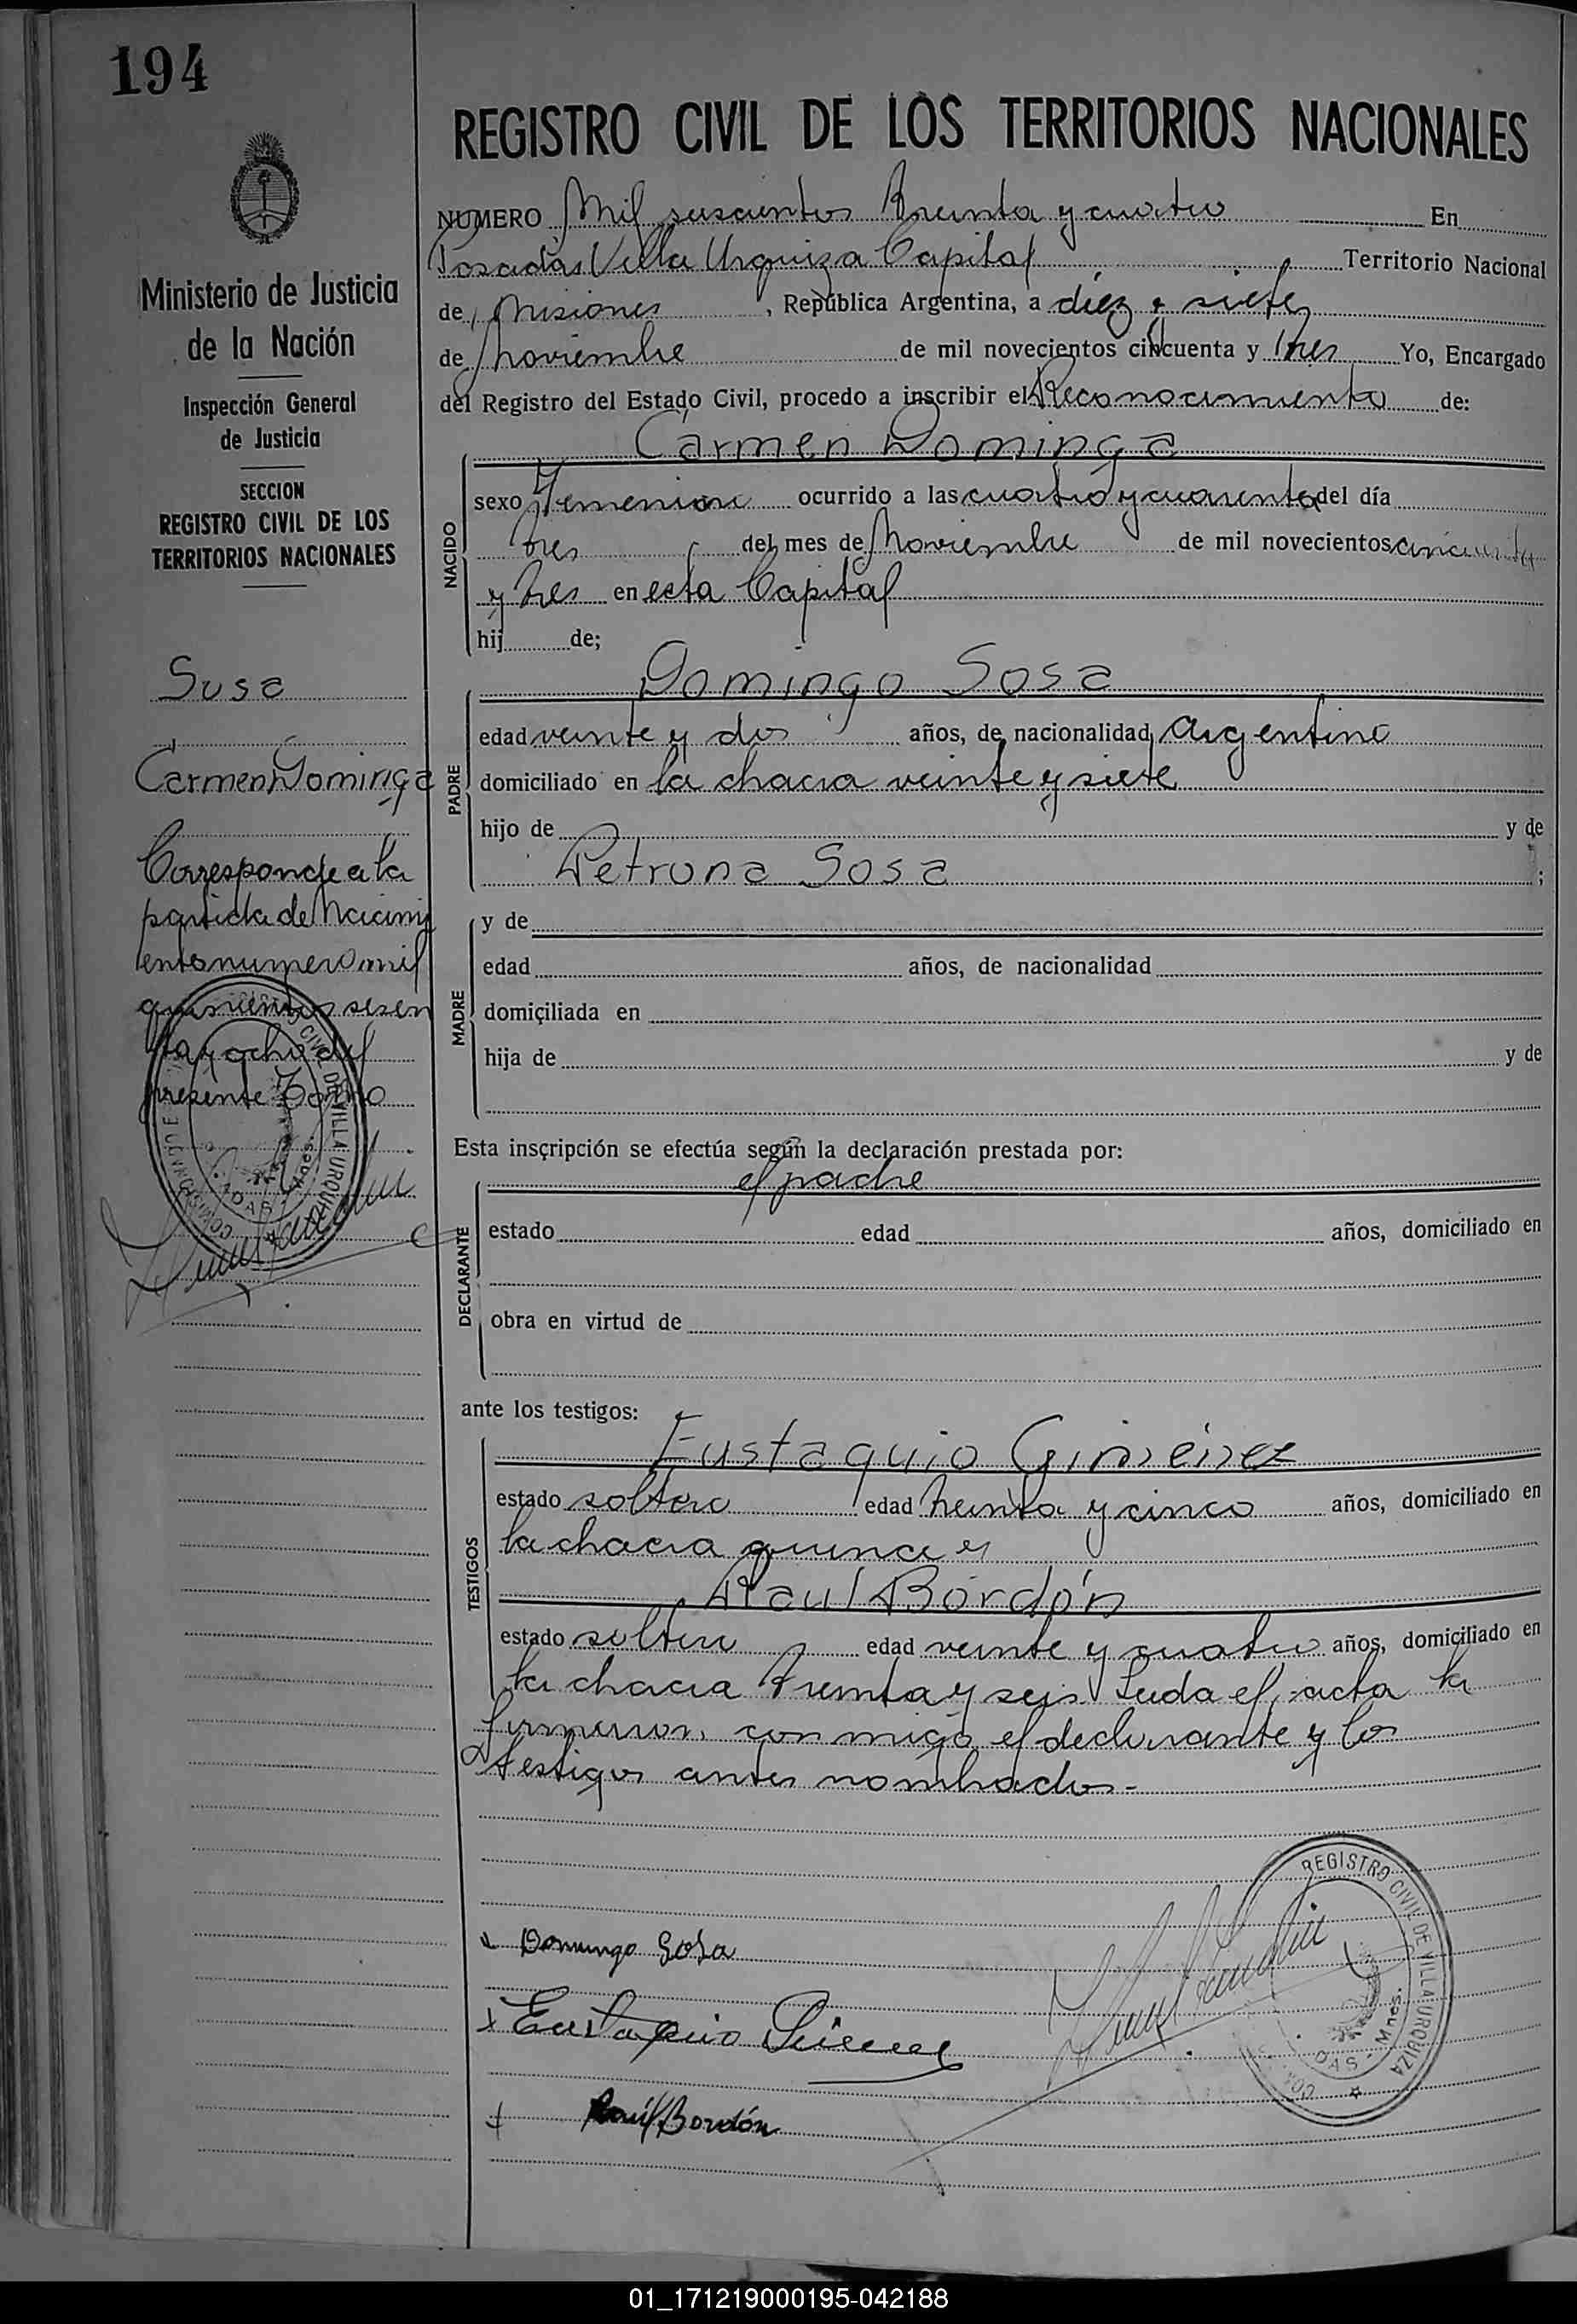 194
Ministerio de Justicia
de la Nación
Inspección General
de Justicia
SECCION
REGISTRO CIVIL DE LOS
TERRITORIOS NACIONALES
Sosa
Carmen Dominga
Corresponde a la
partida de Nacimi
ento numero mil
quinientos sesen
ta y ocho del
presente Tomo
REGISTRO CIVIL DE LOS TERRITORIOS NACIONALES
NUMERO Mil seiscientos treinta y cuatro En
Posadas Villa Urquiza Capital Territorio Nacional
de Misiones, República Argentina, a diez y siete
de Noviembre de mil novecientos cincuenta y tres Yo, Encargado
del Registro del Estado Civil, procedo a inscribir el Reconocimiento de:
Carmen Dominga
NACIDO
sexo Femenino ocurrido a las cuatro y cuarenta del día
tres del mes de Noviembre de mil novecientos cincuenta
y tres en esta Capital
hij de;
Domingo Sosa
PADRE
edad veinte y dos años, de nacionalidad Argentino
domiciliado en la chacra veinte y siete
hijo de y de
Petrona Sosa ;
MADRE
y de
edad años, de nacionalidad
domiciliada en
hija de y de
Esta inscripción se efectúa según la declaración prestada por:
el padre
DECLARANTE
estado edad años, domiciliado en
obra en virtud de
ante los testigos:
Eustaquio Giménez
TESTIGOS
estado soltero edad treinta y cinco años, domiciliado en
la chacra quince y
Raul Bordón
estado soltero edad veinte y cuatro años, domiciliado en
la chacra treinta y seis Leida el acta la
firmaron con migo el declarante y los
testigos antes nombrados.-
Domingo Sosa
Eustaquio Gimenez
Raúl Bordón
REGISTRO CIVIL DE VILLA URQUIZA
DAS - Mnes.
01_171219000195-042188